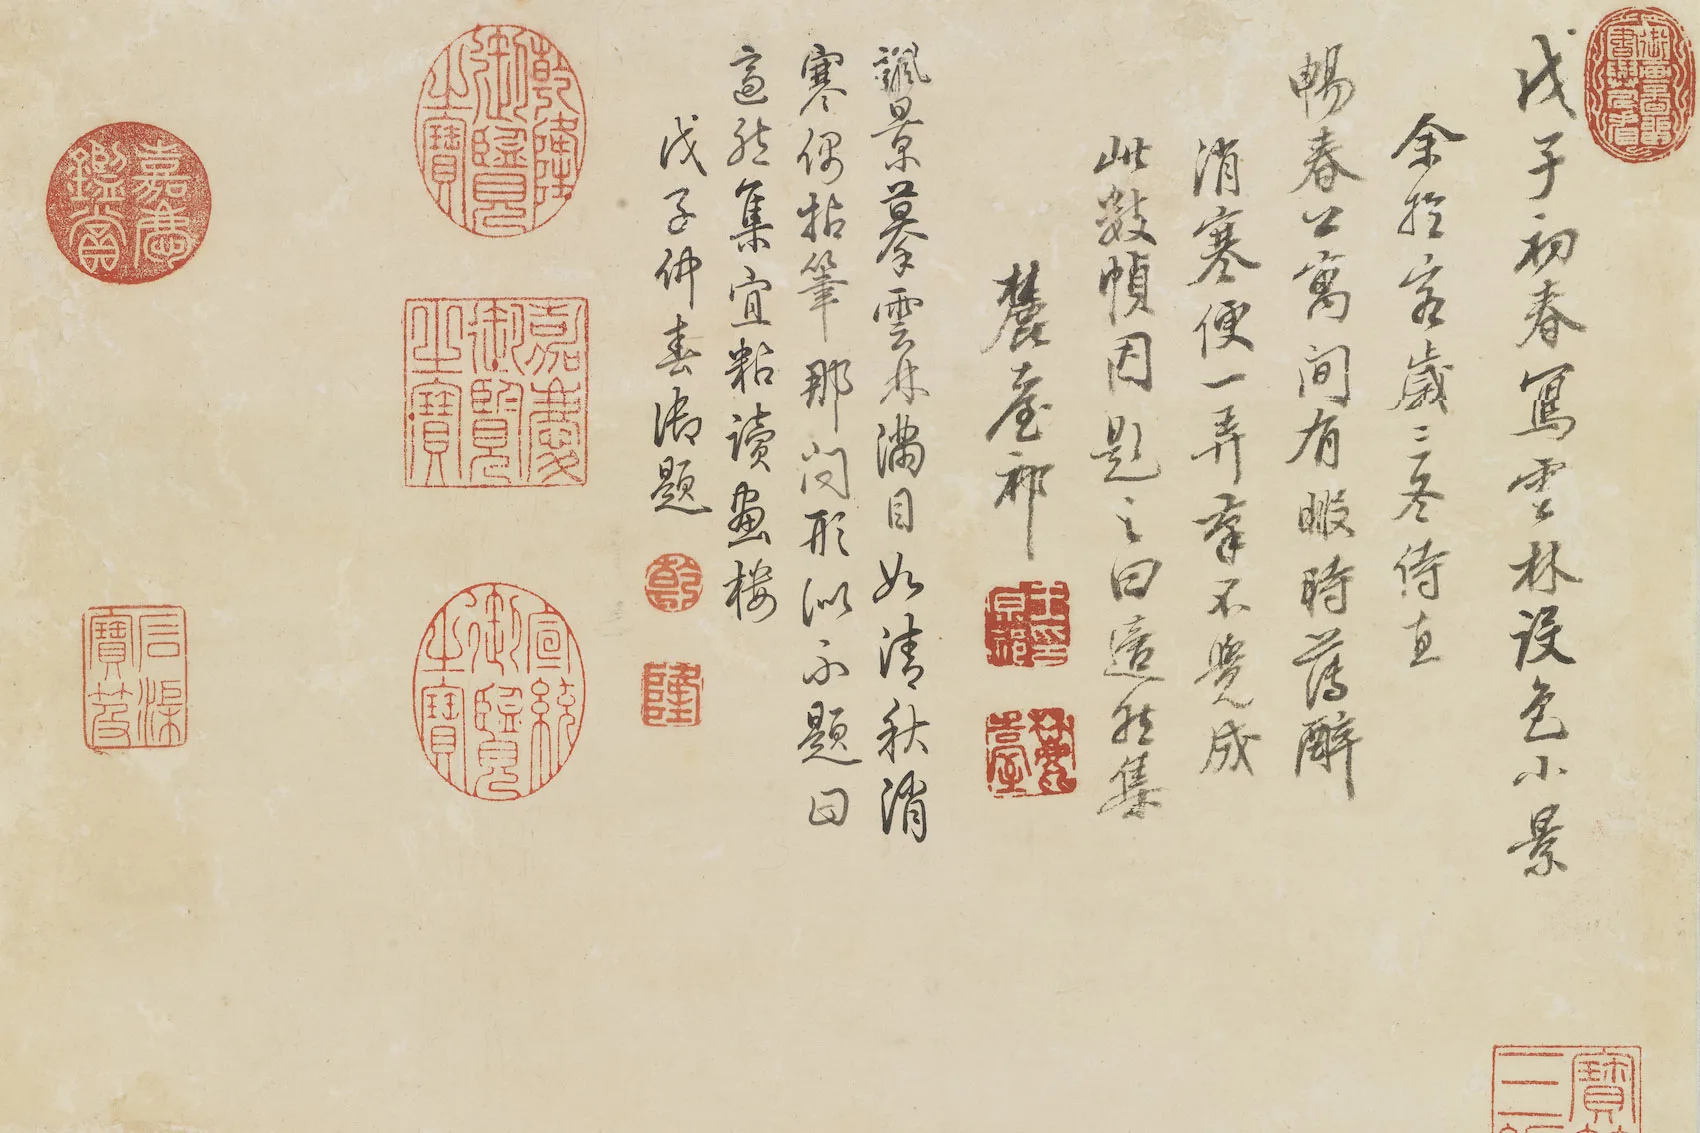 戊子初春寫雲林設色小景
余於客歲三冬侍直
暢春公寓間有暇時薄醉
消寒便一弄筆不覺成
此數幀因題之曰適然集
麓臺祁
王印原祁
麓臺
諷景摹雲林滿目如清秋消
寒偶拈筆那问形似不題曰
適然集宜粘讀畫樓
戊子仲春御題
乾
隆
乾隆御覽之寶
嘉慶御覽之寶
宣統御覽之寶
嘉慶鑑賞
石渠寶笈